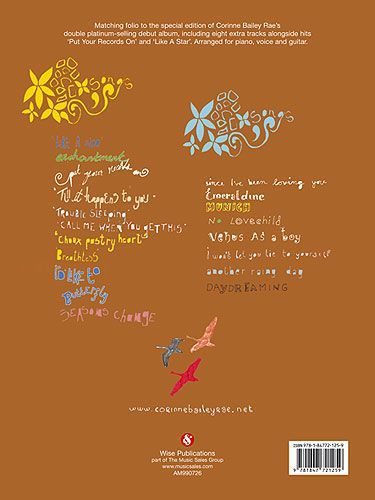 Matching folio to the special edition of Corinne Bailey Rae's
double platinum-selling debut album, including eight extra tracks alongside hits
'Put Your Records On' and 'Like A Star'. Arranged for piano, voice and guitar.
songs
like a star
enchantment
put your records on
'Till it happens to you
'TROUBLE SLEEPING'
'CALL ME WHEN YOU GET THIS'
"Choux pastry heart"
Breathless
I'd like to
Butterfly
SEASONS CHANGE
songs
since I've been loving you
Emeraldine
MUNICH
NO Lovechild
Venus As a boy
I won't let you lie to yourself
another rainy day
DAYDREAMING
www.corinnebaileyrae.net
Wise Publications
part of The Music Sales Group
www.musicsales.com
AM990726
ISBN 978-1-84772-125-9
9 781847 721259